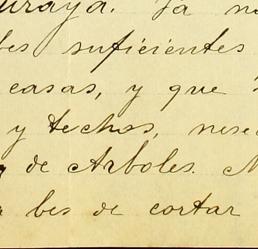 uraya. Ya n
bes suficientes
casas, y que
y techos, nese
de Arboles. N
bes de cortar